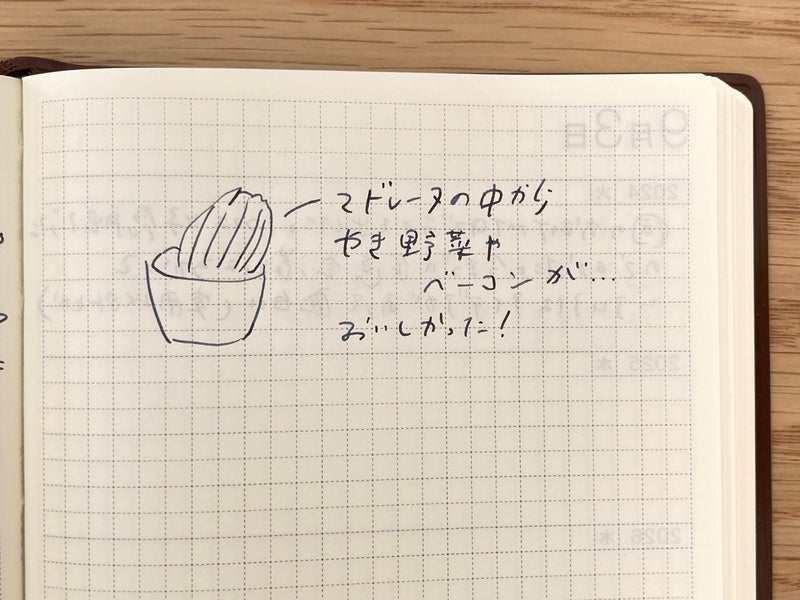 マドレーヌの中から
やき野菜や
ベーコンが…
おいしかった!